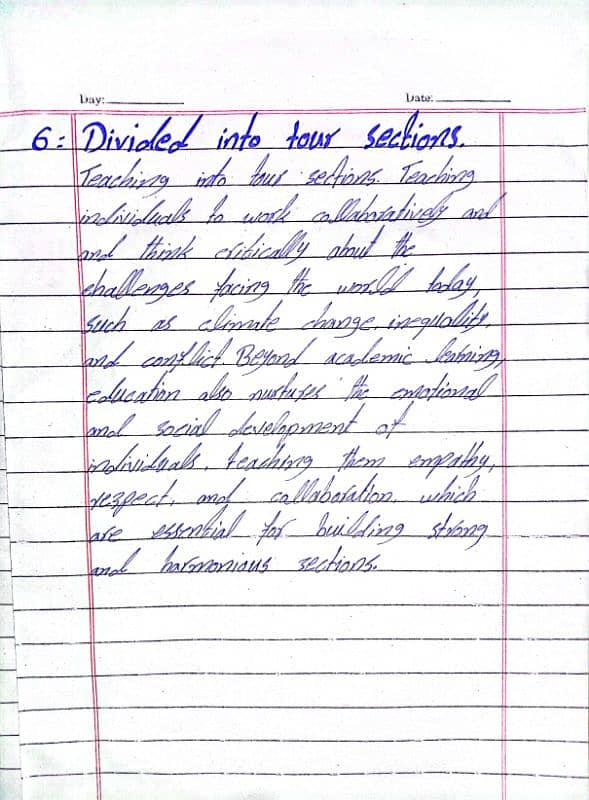 Day: Date:
6: Divided into four sections.
Teaching into four sections. Teaching
individuals to work collaboratively and
and think critically about the
challenges facing the world today,
such as climate change, inequality,
and conflict. Beyond academic learning,
education also nurtures the emotional
and social development of
individuals, teaching them empathy,
respect, and collaboration, which
are essential for building strong
and harmonious sections.